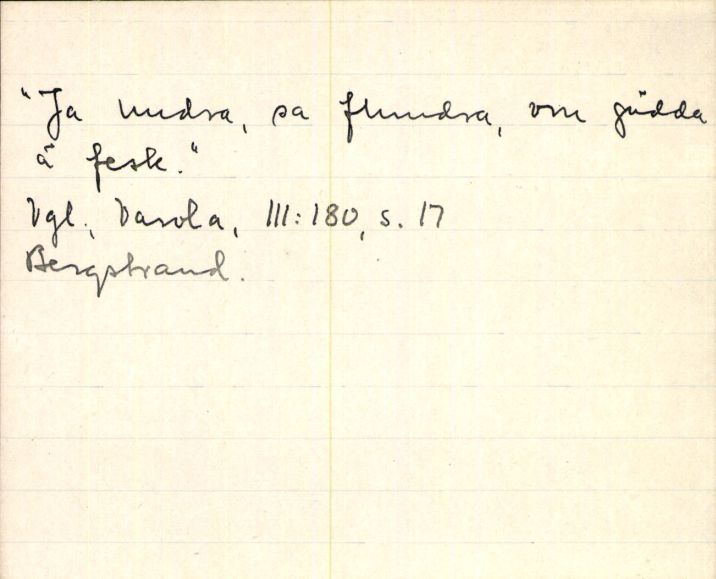 "Ja undra, sa flundra, om gädda
ä fesk."
Vgl., Varola, III:180, s. 17
Bergstrand.